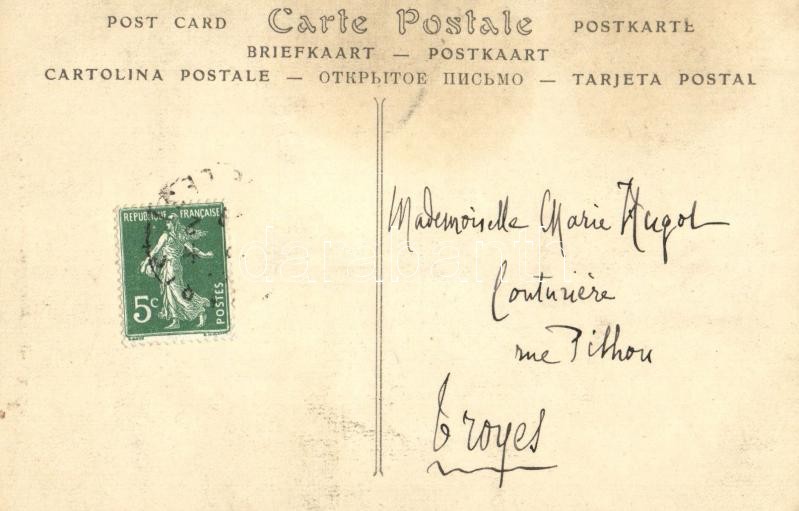 POST CARD Carte Postale POSTKARTE
BRIEFKAART — POSTKAART
CARTOLINA POSTALE — ОТКРЫТОЕ ПИСЬМО — TARJETA POSTAL
REPUBLIQUE FRANÇAISE
5c
POSTES
Mademoiselle Marie Hugot
Couturière
rue Pithou
Troyes